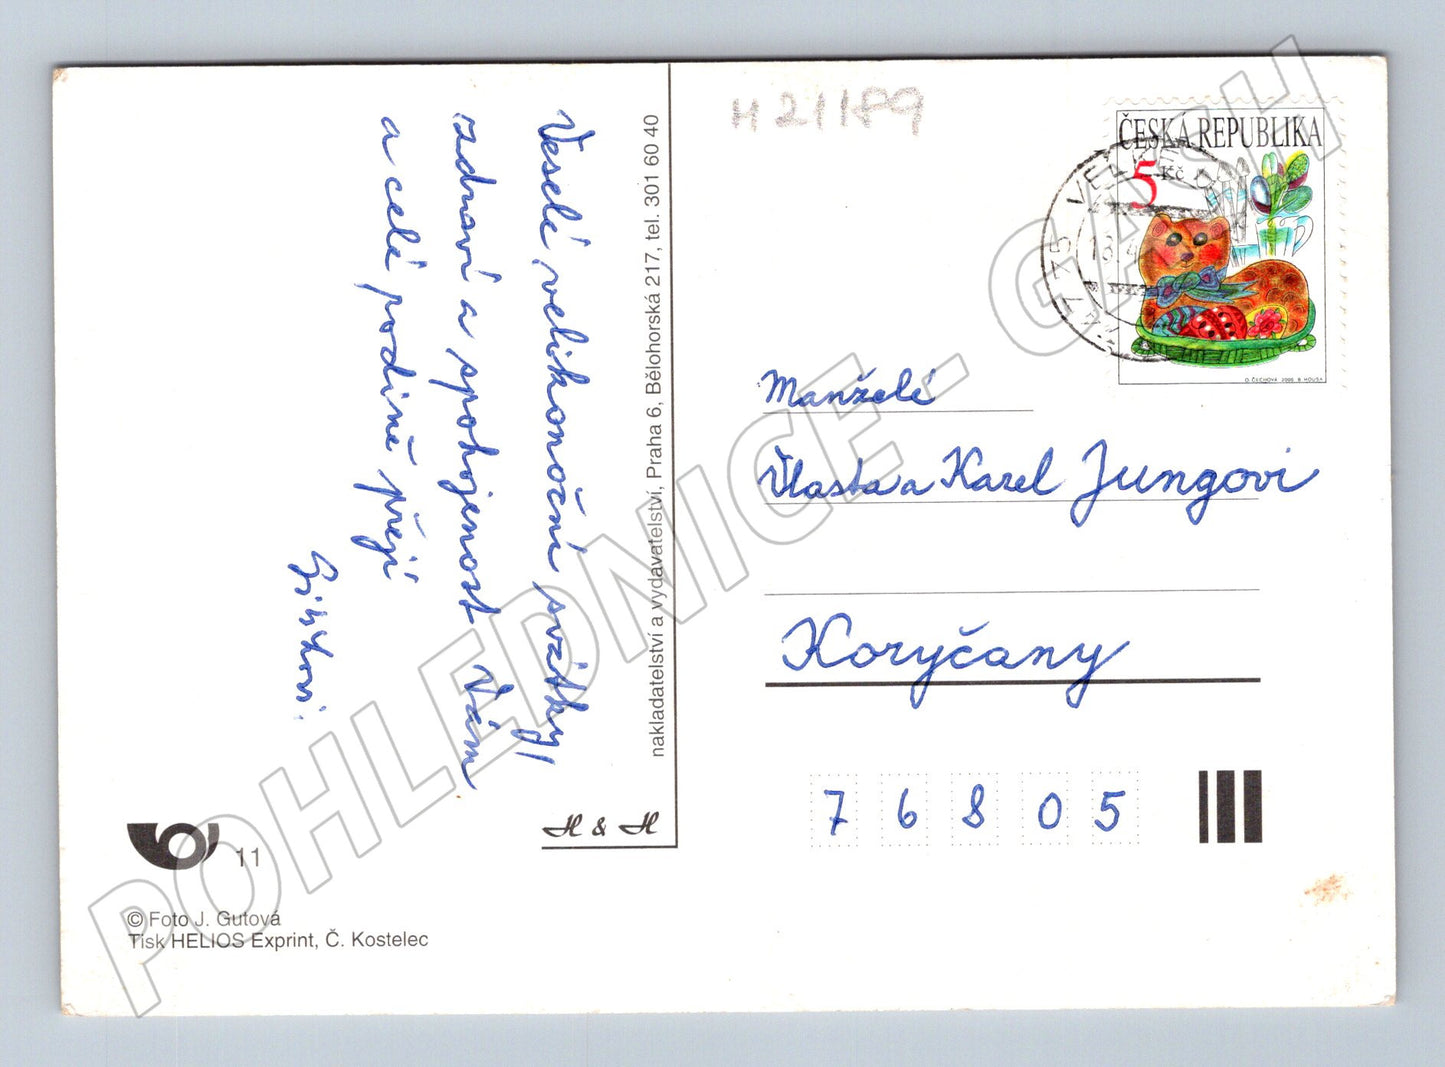 Veselé velikonoční svátky,
zdraví a spokojenost Vám
a celé rodině přejí
H 21189
ČESKÁ REPUBLIKA
5 Kč
O. ČECHOVÁ 2000 B. HOUSA
775 VELKÉ
Manželé
Vlasta a Karel Jungovi
Koryčany
7 6 8 0 5
nakladatelství a vydavatelství, Praha 6, Bělohorská 217, tel. 301 60 40
H & H
11
© Foto J. Gutová
Tisk HELIOS Exprint, Č. Kostelec
POHLEDNICE - GASH